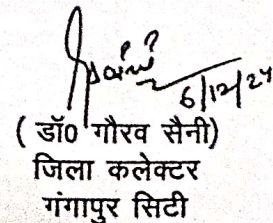 6/12/24
( डॉ0 गौरव सैनी)
जिला कलेक्टर
गंगापुर सिटी